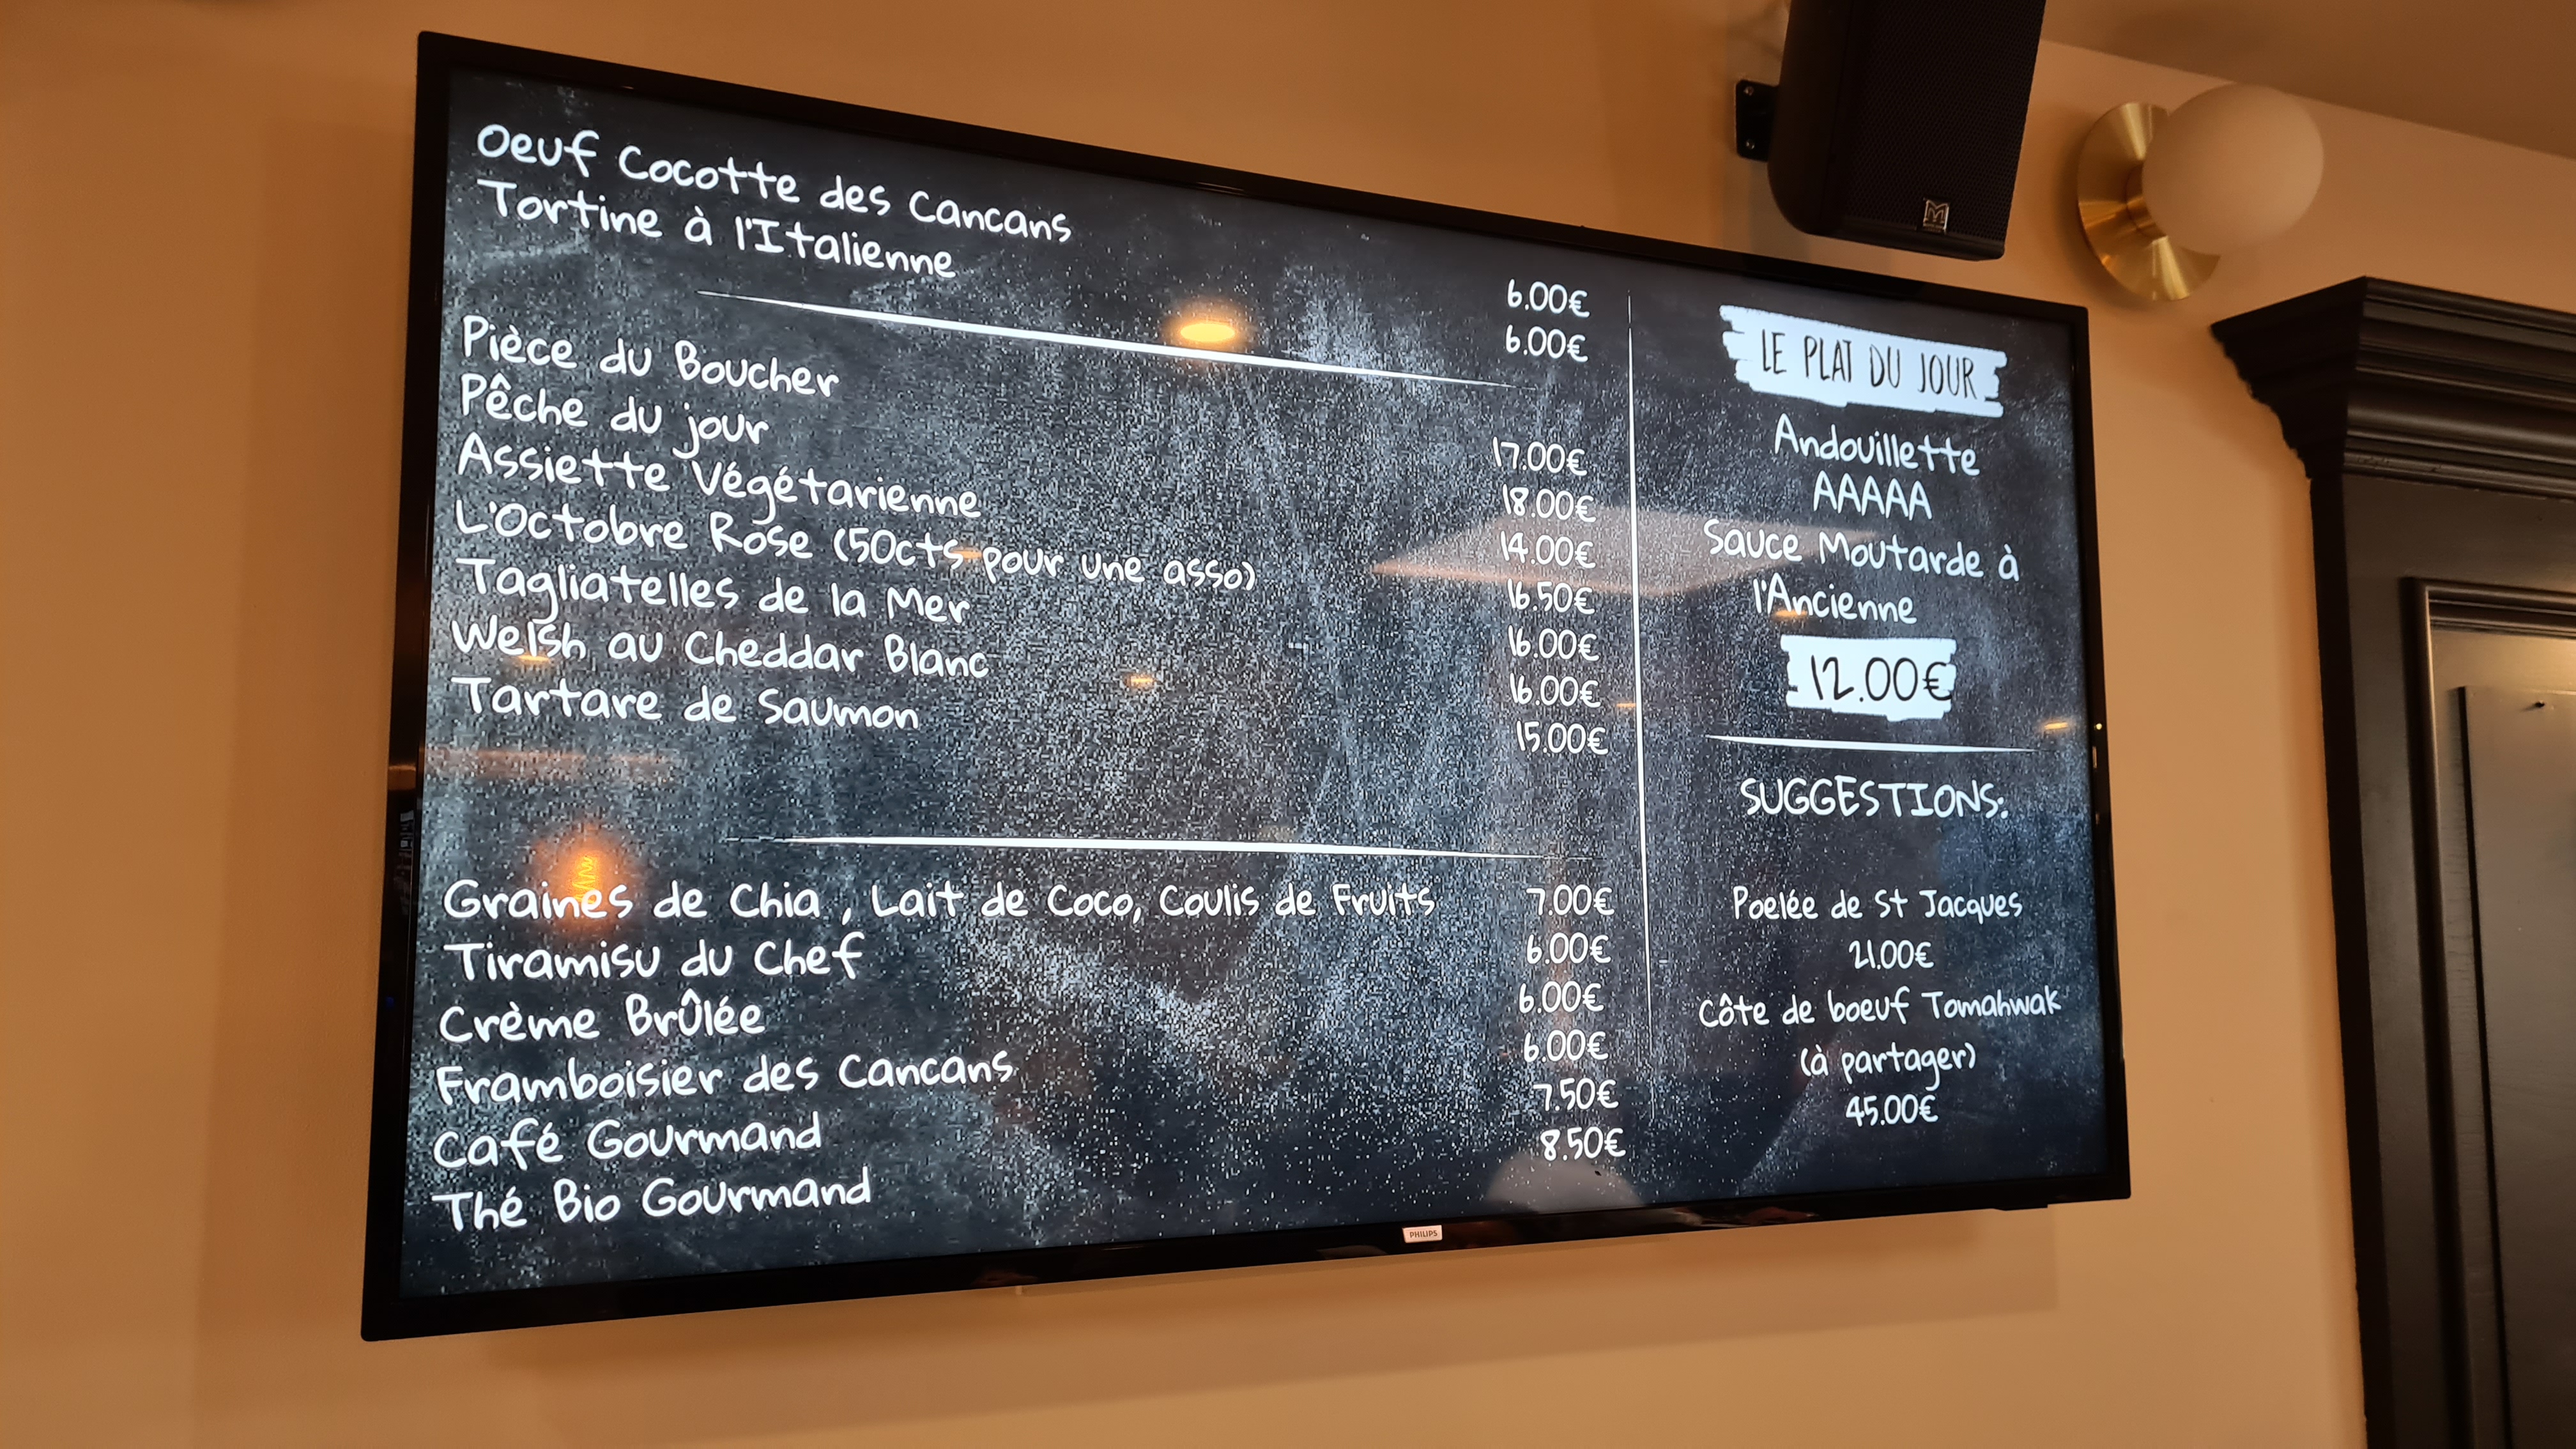 Oeuf Cocotte des Cancans 6.00€
Tortine à l'Italienne 6.00€
Pièce du Boucher 17.00€
Pêche du jour 18.00€
Assiette Végétarienne 14.00€
L'Octobre Rose (50cts pour une asso) 16.50€
Tagliatelles de la Mer 16.00€
Welsh au Cheddar Blanc 16.00€
Tartare de Saumon 15.00€
Graines de Chia , Lait de Coco, Coulis de Fruits 7.00€
Tiramisu du Chef 6.00€
Crème BrÛlée 6.00€
Framboisier des Cancans 6.00€
Café Gourmand 7.50€
Thé Bio Gourmand 8.50€
LE PLAT DU JOUR
Andouillette
AAAAA
Sauce Moutarde à
l'Ancienne
12.00€
SUGGESTIONS:
Poelée de St Jacques
21.00€
Côte de boeuf Tomahwak
(à partager)
45.00€
PHILIPS